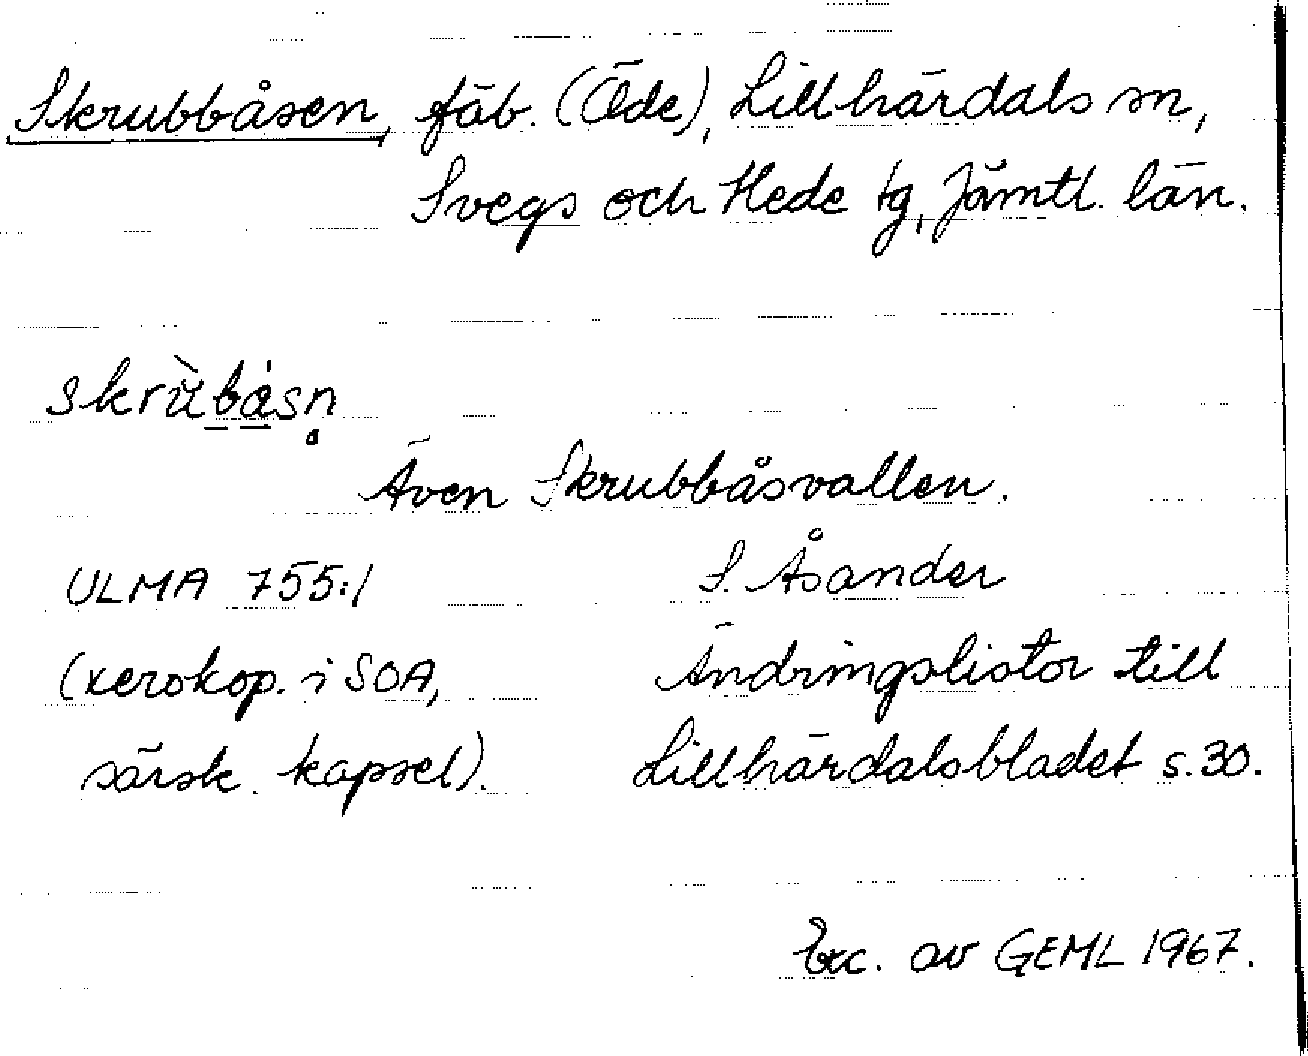 Skrubbåsen, fäb. (Öde), Lillhärdals sn,
Svegs och Hede tg, Jämtl. län.
skrùbåsn̥
Även Skrubbåsvallen.
ULMA 755:1 S. Åsander
(xerokop. i SOA, Ändringslistor till
särsk. kapsel). Lillhärdalsbladet s. 30.
Exc. av GEML 1967.